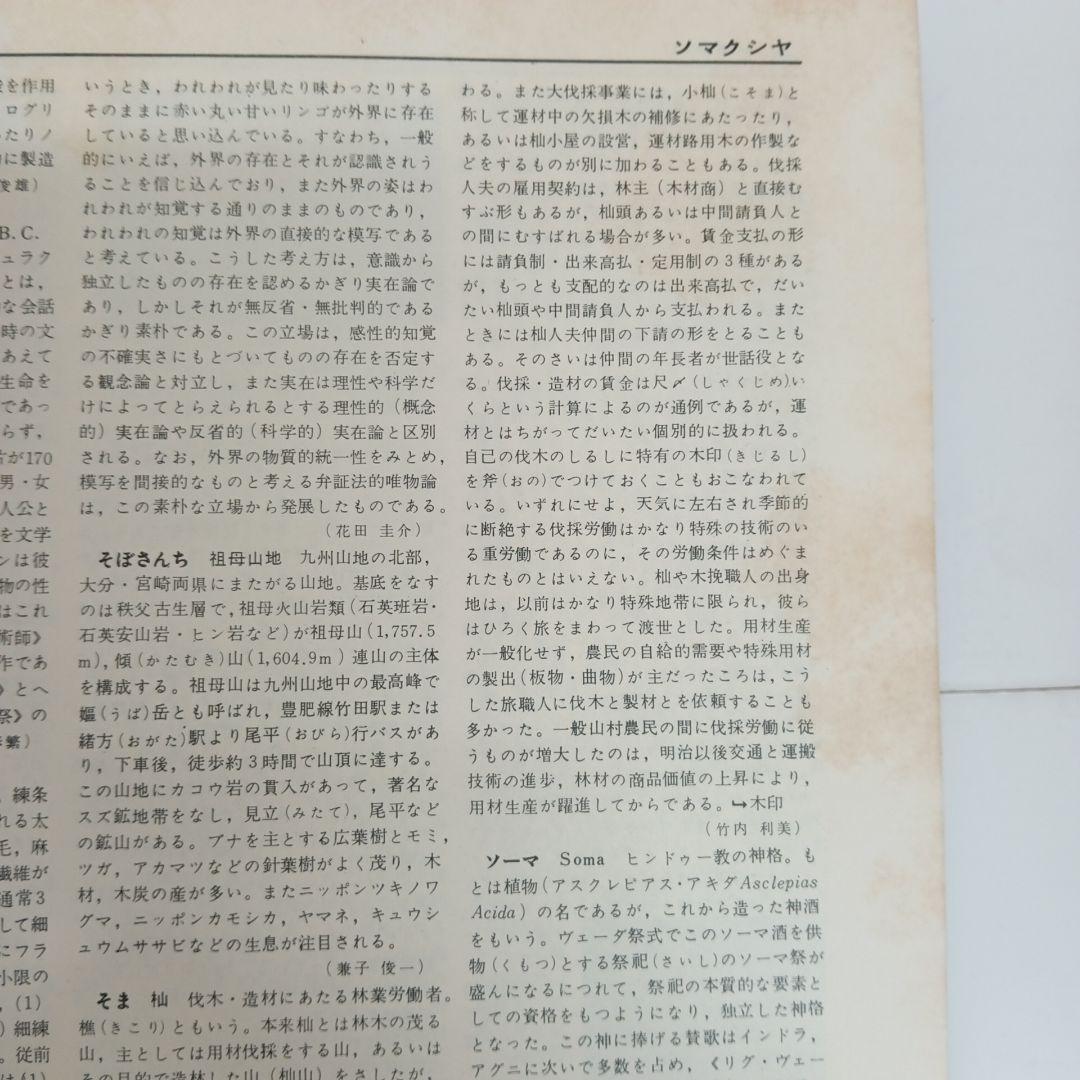 ソマクシヤ
を作用
ログリ
ったりノ
に製造
俊雄）
B.C.
ュラク
とは，
な会話
時の文
あえて
生命を
であっ
らず，
が170
男・女
人公と
を文学
ンは彼
物の性
はこれ
術師》
作であ
》とへ
祭》の
繁）
，練条
れる太
毛，麻
繊維が
通常3
して細
にフラ
小限の
，(1)
）細練
。従前
いうとき，われわれが見たり味わったりする
そのままに赤い丸い甘いリンゴが外界に存在
していると思い込んでいる。すなわち，一般
的にいえば，外界の存在とそれが認識されう
ることを信じ込んでおり，また外界の姿はわ
れわれが知覚する通りのままのものであり，
われわれの知覚は外界の直接的な模写である
と考えている。こうした考え方は，意識から
独立したものの存在を認めるかぎり実在論で
あり，しかしそれが無反省・無批判的である
かぎり素朴である。この立場は，感性的知覚
の不確実さにもとづいてものの存在を否定す
る観念論と対立し，また実在は理性や科学だ
けによってとらえられるとする理性的（概念
的）実在論や反省的（科学的）実在論と区別
される。なお，外界の物質的統一性をみとめ，
模写を間接的なものと考える弁証法的唯物論
は，この素朴な立場から発展したものである。
（花田 圭介）
そぼさんち　祖母山地　九州山地の北部，
大分・宮崎両県にまたがる山地。基底をなす
のは秩父古生層で，祖母火山岩類（石英斑岩・
石英安山岩・ヒン岩など）が祖母山（1,757.5
m），傾（かたむき）山（1,604.9m）連山の主体
を構成する。祖母山は九州山地中の最高峰で
嫗（うば）岳とも呼ばれ，豊肥線竹田駅または
緒方（おがた）駅より尾平（おびら）行バスがあ
り，下車後，徒歩約3時間で山頂に達する。
この山地にカコウ岩の貫入があって，著名な
スズ鉱地帯をなし，見立（みたて），尾平など
の鉱山がある。ブナを主とする広葉樹とモミ，
ツガ，アカマツなどの針葉樹がよく茂り，木
材，木炭の産が多い。またニッポンツキノワ
グマ，ニッポンカモシカ，ヤマネ，キュウシ
ュウムササビなどの生息が注目される。
（兼子 俊一）
そま　杣　伐木・造材にあたる林業労働者。
樵（きこり）ともいう。本来杣とは林木の茂る
山，主としては用材伐採をする山，あるいは
その目的で造林した山（杣山）をさしたが，
わる。また大伐採事業には，小杣（こそま）と
称して運材中の欠損木の補修にあたったり，
あるいは杣小屋の設営，運材路用木の作製な
どをするものが別に加わることもある。伐採
人夫の雇用契約は，林主（木材商）と直接む
すぶ形もあるが，杣頭あるいは中間請負人と
の間にむすばれる場合が多い。賃金支払の形
には請負制・出来高払・定用制の3種がある
が，もっとも支配的なのは出来高払で，だい
たい杣頭や中間請負人から支払われる。また
ときには杣人夫仲間の下請の形をとることも
ある。そのさいは仲間の年長者が世話役とな
る。伐採・造材の賃金は尺〆（しゃくじめ）い
くらという計算によるのが通例であるが，運
材とはちがってだいたい個別的に扱われる。
自己の伐木のしるしに特有の木印（きじるし）
を斧（おの）でつけておくこともおこなわれて
いる。いずれにせよ，天気に左右され季節的
に断絶する伐採労働はかなり特殊の技術のい
る重労働であるのに，その労働条件はめぐま
れたものとはいえない。杣や木挽職人の出身
地は，以前はかなり特殊地帯に限られ，彼ら
はひろく旅をまわって渡世とした。用材生産
が一般化せず，農民の自給的需要や特殊用材
の製出（板物・曲物）が主だったころは，こう
した旅職人に伐木と製材とを依頼することも
多かった。一般山村農民の間に伐採労働に従
うものが増大したのは，明治以後交通と運搬
技術の進歩，林材の商品価値の上昇により，
用材生産が躍進してからである。↪木印
（竹内 利美）
ソーマ　Soma　ヒンドゥー教の神格。も
とは植物（アスクレピアス・アキダAsclepias
Acida）の名であるが，これから造った神酒
をもいう。ヴェーダ祭式でこのソーマ酒を供
物（くもつ）とする祭祀（さいし）のソーマ祭が
盛んになるにつれて，祭祀の本質的な要素と
しての資格をもつようになり，独立した神格
となった。この神に捧げる賛歌はインドラ，
アグニに次いで多数を占め，《リグ・ヴェー